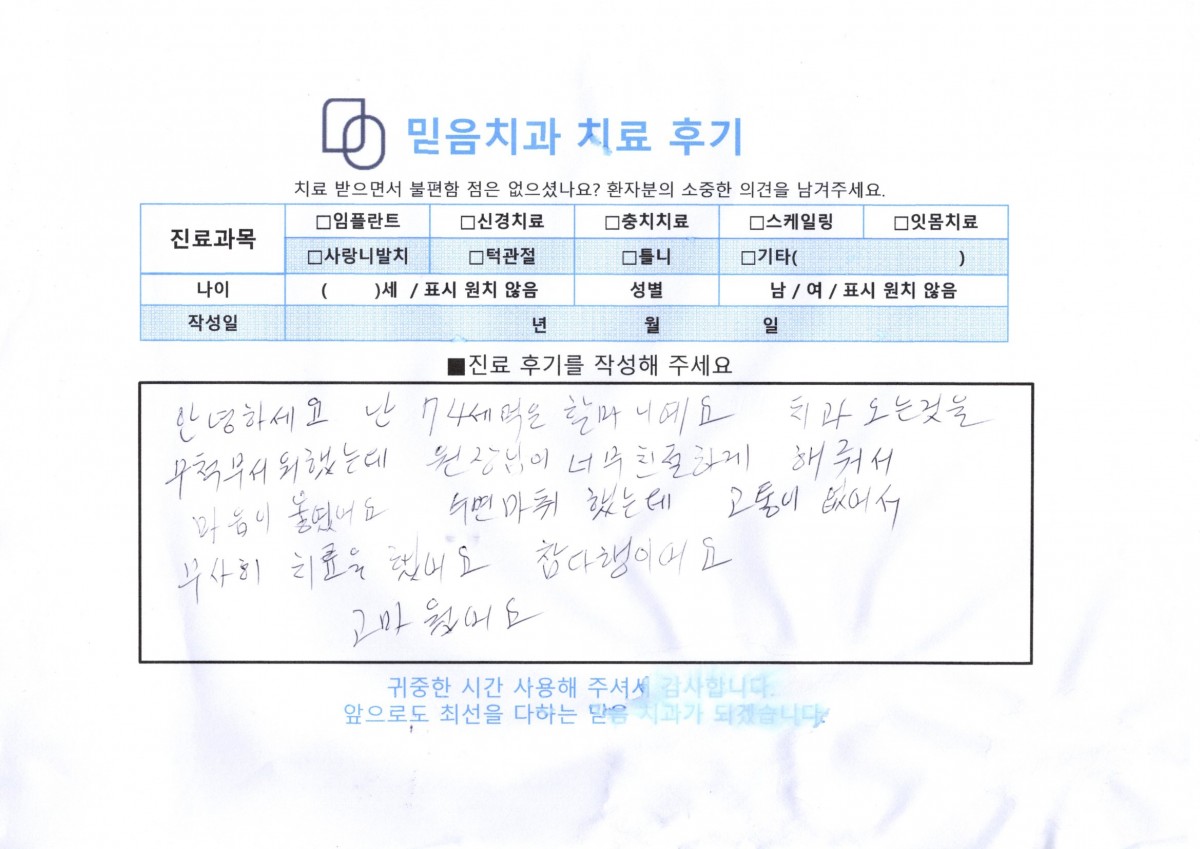 믿음치과 치료 후기
치료 받으면서 불편함 점은 없으셨나요? 환자분의 소중한 의견을 남겨주세요.
진료과목 □임플란트 □신경치료 □충치치료 □스케일링 □잇몸치료
□사랑니발치 □턱관절 □틀니 □기타( )
나이 ( )세 / 표시 원치 않음 성별 남 / 여 / 표시 원치 않음
작성일 년 월 일
■진료 후기를 작성해 주세요
안녕하세요 난 74세먹은 할마니예요 치과 오는것을
무척무서워했는데 원장님이 너무친절하게 해줘서
마음이 놓였어요 수면마취 했는데 고통이 없어서
무사히 치료을 했어요 참다행이어요
고마웠어요
귀중한 시간 사용해 주셔서 감사합니다.
앞으로도 최선을 다하는 믿음 치과가 되겠습니다.